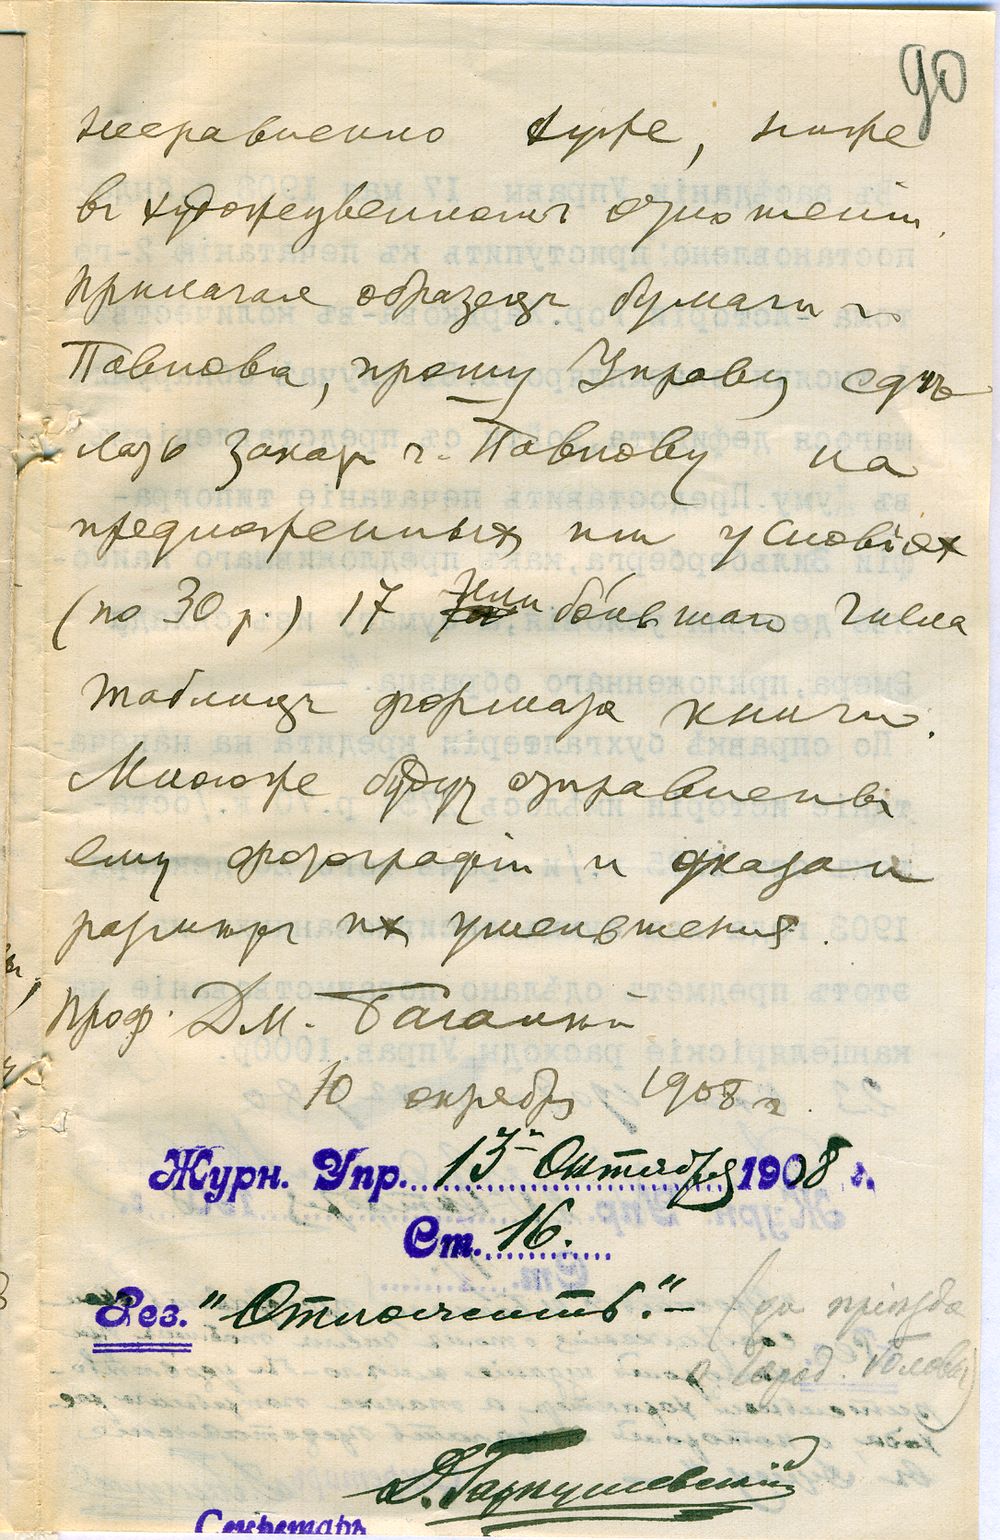 90
несравненно хуже, ниже
въ художественномъ отношеніи.
Прилагая образецъ бумаги г.
Павлова, прошу Управу сдѣ
лать заказъ г. Павлову на
предложенныхъ им условіях
(по 30 р.) 17 или большаго числа
таблицъ формата книги.
Мною же будут отправлены
ему фотографіи и указан
размѣръ их уменьшения.
Проф. Дм. Багалѣй
10 октября 1908 г.
Журн. Упр. 13 Октября 1908 г.
Ст. 16.
Рез. "Отложить". —
(до пріѣзда
Город. Головы)
Секретарь